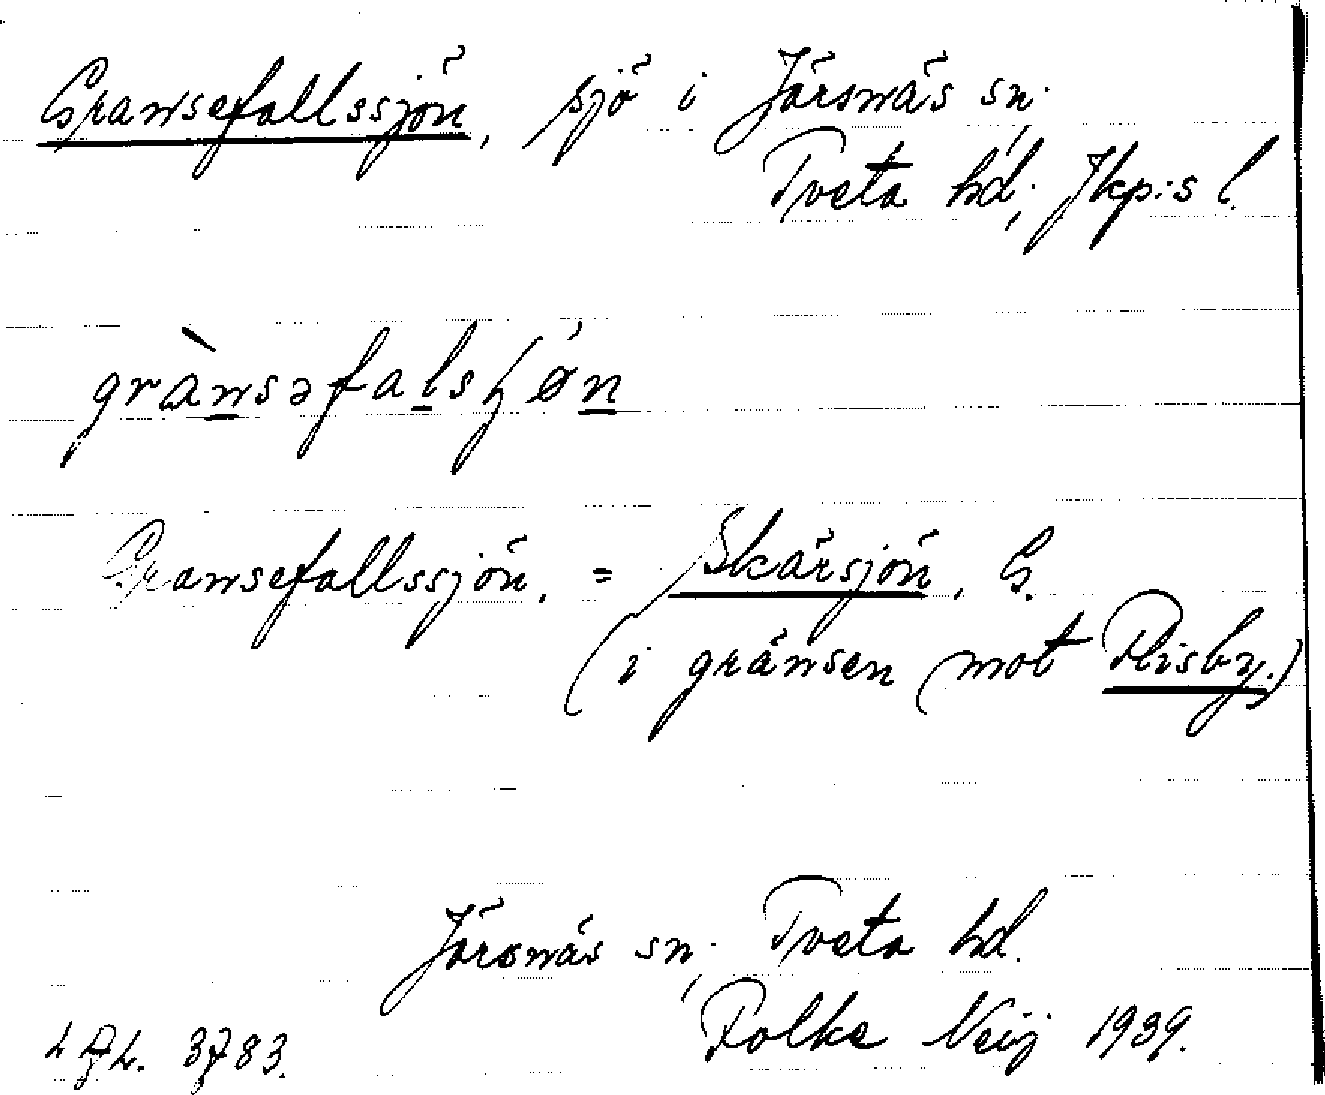 Gransefallssjön, sjö i Järsnäs sn.
Tveta hd, Jkp:s l.
grànsəfalsʃø̀n
Gransefallssjön, = Skärsjön, G.
(i gränsen (mot Flisby.)
Järsnäs sn, Tveta hd.
Folke Neij 1939.
3783.